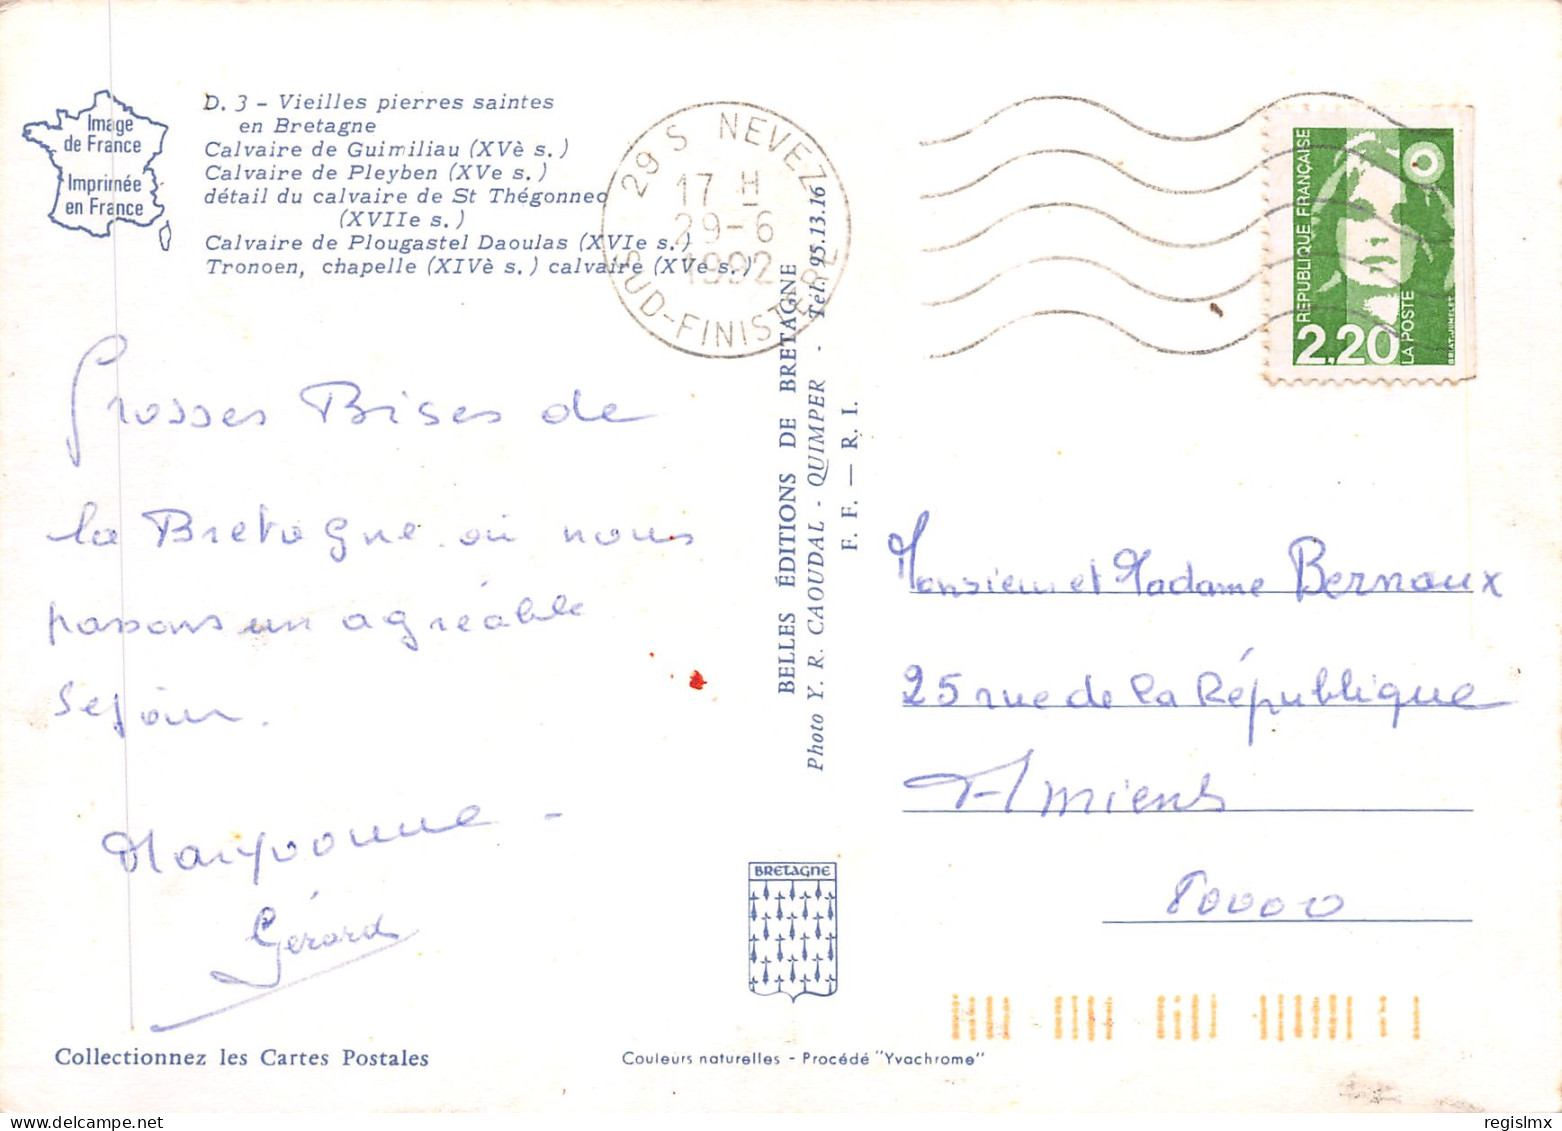 Image
de France
Imprimée
en France
D. 3 - Vieilles pierres saintes
en Bretagne
Calvaire de Guimiliau (XVè s.)
Calvaire de Pleyben (XVe s.)
détail du calvaire de St Thégonnec
(XVIIe s.)
Calvaire de Plougastel Daoulas (XVIe s.)
Tronoen, chapelle (XIVè s.) calvaire (XVe s.)
29 S NEVEZ
17 H
29-6
1992
SUD-FINISTERE
REPUBLIQUE FRANÇAISE
2,20
LA POSTE
BRIAT-JUMELET
Grosses Bises de
la Bretagne où nous
passons un agréable
sejour.
Maryvonne -
Gérard
BELLES ÉDITIONS DE BRETAGNE
Photo Y. R. CAOUDAL - QUIMPER - Tél. 95.13.16
F. F. — R. I.
Monsieur et Madame Bernaux
25 rue de la République
Amiens
80000
BRETAGNE
Collectionnez les Cartes Postales
Couleurs naturelles - Procédé "Yvachrome"
regislmx